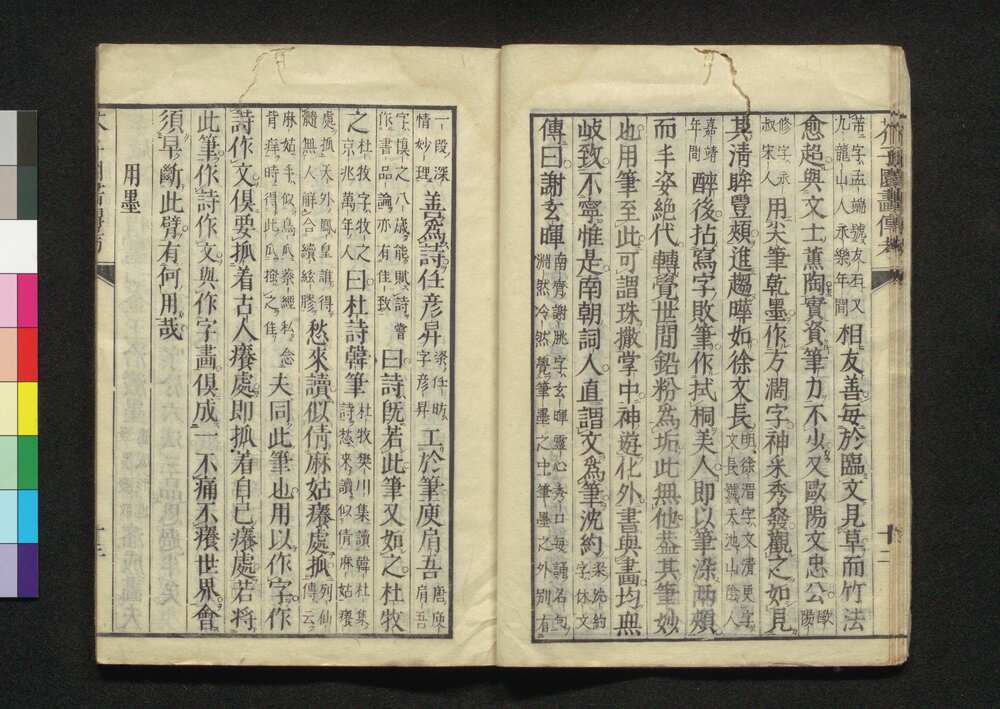 芾字孟端號友石又九龍山人永樂年間相友善每於臨文見草而竹法
愈超與文士薫陶實資筆力不少又歐陽文忠公歐陽
修字永叔宋人用尖筆乾墨作方濶字神采秀發觀之如見
其清眸豐頰進趨曄如徐文長明徐渭字文清更字文長號天池山陰人
嘉靖年間醉後拈寫字敗筆作拭桐美人即以筆染兩頰
而丰姿絕代轉覺世間鉛粉為垢此無他葢其筆妙
也用筆至此可謂珠撒掌中神遊化外書與畫均無
岐致不寧惟是南朝詞人直謂文為筆沈約梁沈約字休文
傳曰謝玄暉南齊謝朓字玄暉靈心秀口每誦名句淵然冷然覺筆墨之中筆墨之外別有
一段深情妙理善為詩任彦昇梁任昉字彦昇工於筆庾肩吾唐庾肩吾
字慎之八歲能賦詩嘗作書品論亦有佳致曰詩既若此筆又如之杜牧
之杜牧字牧之京兆萬年人曰杜詩韓筆杜牧樊川集讀韓杜集詩愁來讀似倩麻姑癢
處抓天外鳳皇誰得髓無人解合續絃膠愁來讀似倩麻姑癢處抓列仙傳云
麻姑手似鳥爪蔡經私念背痒時得此爪搔之佳夫同此筆也用以作字作
詩作文俱要抓着古人癢處即抓着自己癢處若將
此筆作詩作文與作字畫俱成一不痛不癢世界會
須早斷此臂有何用哉
用墨